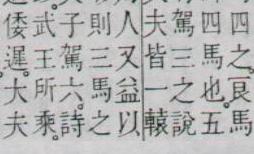 四之。良馬
四馬也。五
駕三之說
夫皆一轅
人又益以
則三馬之
子駕六。詩
武王所乘。
倭遲。大夫